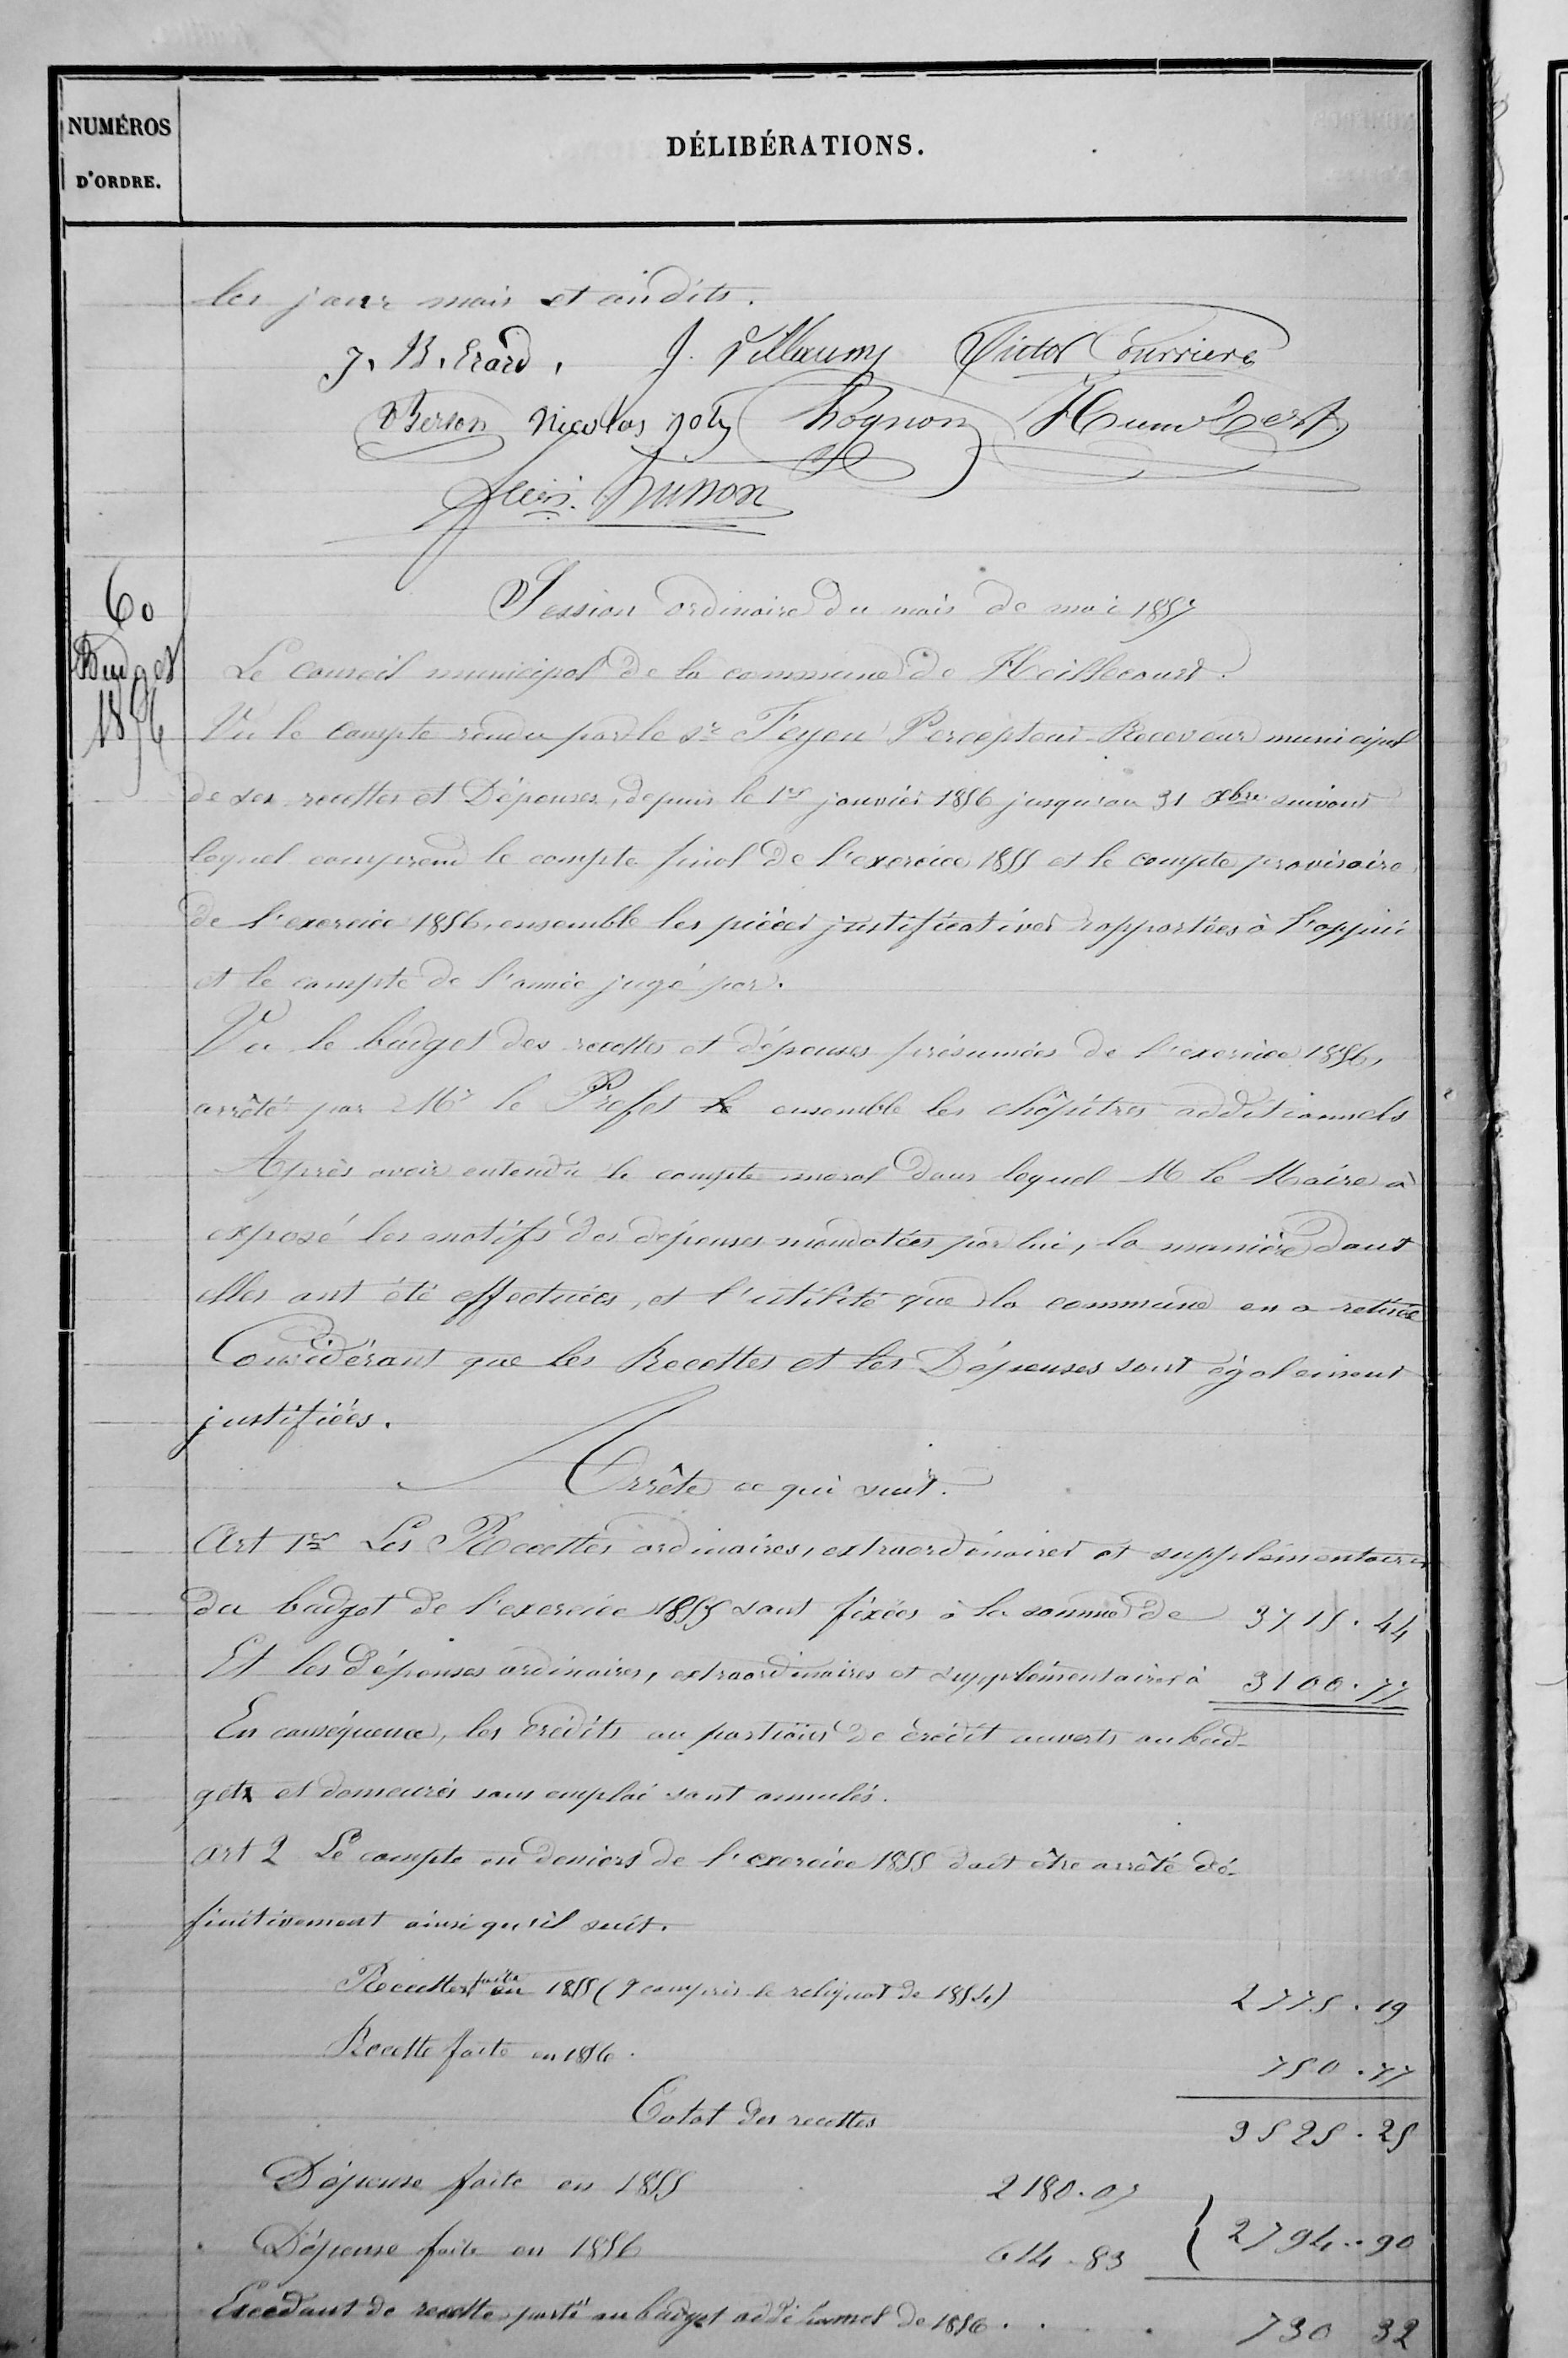 NUMÉROS
D'ORDRE.
DÉLIBÉRATIONS.
les jour mois et an dits.
J. B. Erard, J. Villaumy Victor Courriere
Berson Nicolas Joly Rognon Humbert
Husson
60
Budget
1856
Session ordinaire du mois de mai 1857
Le Conseil municipal de la commune de Hoillecourt.
Vu le compte rendu par le Sr Feyen Percepteur Receveur municipal
de ses recettes et Dépenses, depuis le 1er janvier 1856 jusqu'au 31 Xbre suivant
lequel comprend le compte final de l'exercice 1855 et le compte provisoire
de l'exercice 1856, ensemble les pièces justificatives rapportées à l'appui
et le compte de l'année jugé par.
Vu le budget des recettes et dépenses présumées de l'exercice 1856,
arrêté par Mr le Préfet ensemble les chapitres additionnels
Après avoir entendu le compte moral dans lequel M le Maire a
exposé les motifs des dépenses mandatées par lui, la manière dont
elles ont été effectuées, et l'utilité que la commune en a retirée
Considérant que les Recettes et les Dépenses sont également
justifiées.
Arrête ce qui suit.
Art 1er Les Recettes ordinaires, extraordinaires et supplémentaires
du budget de l'exercice 1855 sont fixées à la somme de 3715.44
Et les dépenses ordinaires, extraordinaires et supplémentaires à 3100.77
En conséquence, les crédits ou portions de crédit ouverts au bud-
get et demeurés sans emploi sont annulés.
Art 2 Le compte en deniers de l'exercice 1855 doit être arrêté dé-
finitivement ainsi qu'il suit.
Recettes faite en 1855 (y compris le reliquat de 1854) 2775.19
Recette faite en 1856. 750.77
Total des recettes 3525.25
Dépense faite en 1855 2180.07
Dépense faite en 1856 614.83 2794.90
Excédant de recette porté au budget additionnel de 1856. 730 32